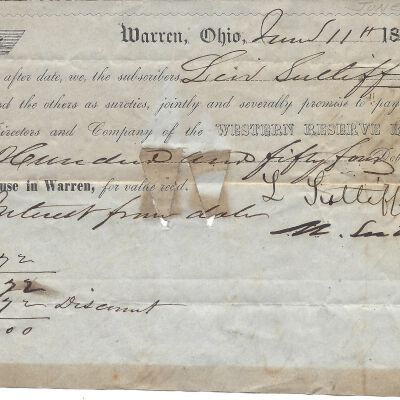 JONE
Warren, Ohio, June 11th 18
after date, we, the subscribers, Levi Sutliff
nd the others as sureties, jointly and severally promise to pay
Directors and Company of the WESTERN RESERVE B
Hundred and fifty four Do
use in Warren, for value rec'd. L Sutliff
nterest from date
M. Sut
72
72
72 Discount
00